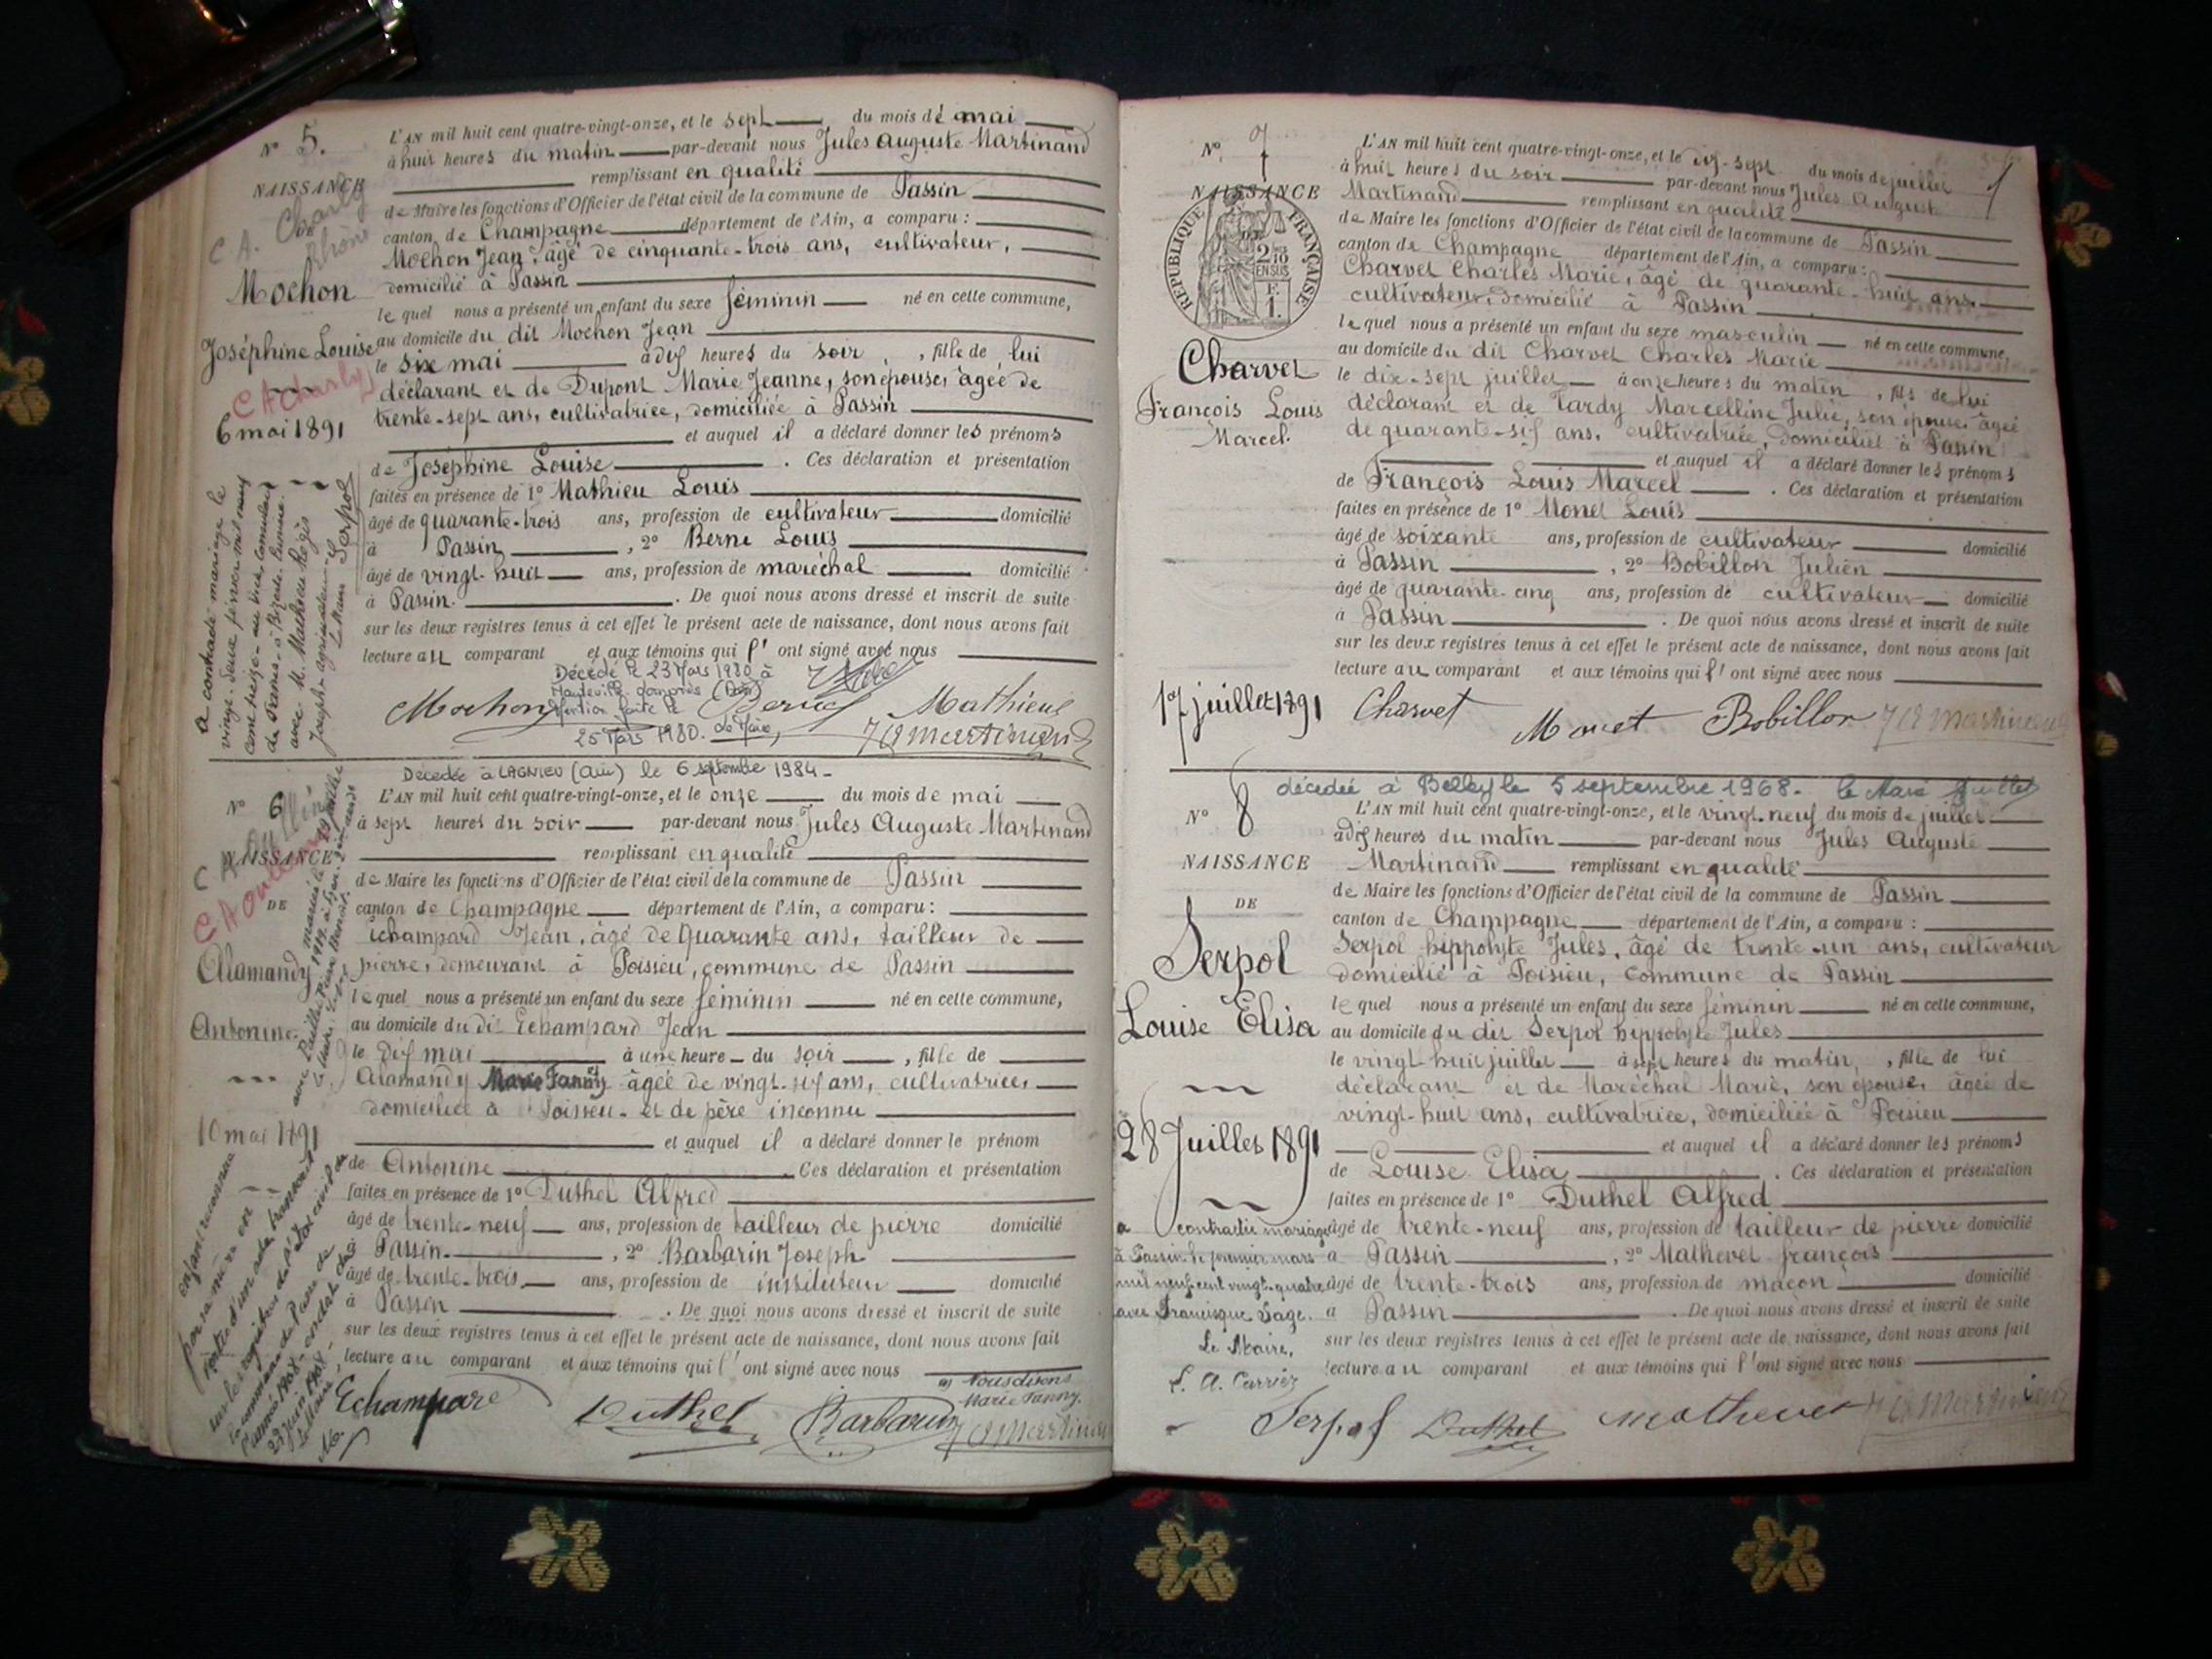 N° 5.
NAISSANCE
DE
C A. Charly
Rhône
Mochon
Joséphine Louise
C A Charly
6 mai 1891
a contracté mariage le
avec M. Mathieu Régis
Joseph agriculteur.
Le Maire Serpol
L'AN mil huit cent quatre-vingt-onze, et le sept du mois de mai
à huit heures du matin par-devant nous Jules Auguste Martinand
remplissant en qualité
de Maire les fonctions d'Officier de l'état civil de la commune de Passin
canton de Champagne département de l'Ain, a comparu :
Mochon Jean, âgé de cinquante-trois ans, cultivateur,
domicilié à Passin
le quel nous a présenté un enfant du sexe féminin né en cette commune,
au domicile du dit Mochon Jean
le six mai à dix heures du soir, fille de lui
déclarant et de Dupont Marie Jeanne, son épouse, âgée de
trente-sept ans, cultivatrice, domiciliée à Passin
et auquel il a déclaré donner les prénoms
de Joséphine Louise. Ces déclaration et présentation
faites en présence de 1° Mathieu Louis
âgé de quarante-trois ans, profession de cultivateur domicilié
à Passin, 2° Berne Louis
âgé de vingt-huit ans, profession de maréchal domicilié
à Passin. De quoi nous avons dressé et inscrit de suite
sur les deux registres tenus à cet effet le présent acte de naissance, dont nous avons fait
lecture au comparant et aux témoins qui l'ont signé avec nous
Décédé le 23 Mars 1980 à
Hauteville Lompnès (Ain)
Mention faite le
25 Mars 1980. Le Maire,
Mochon Berne Mathieu
J A Martinand
Décédée à LAGNIEU (Ain) le 6 septembre 1984 -
N° 6
NAISSANCE
DE
C A Oullins
C A Oullins
Alamandy
Antonine.
10 mai 1891
enfant reconnu
par sa mère en
vertu d'un acte transcrit
sur les registres de l'Etat civil de
23 juin 1908.
Le Maire
L'AN mil huit cent quatre-vingt-onze, et le onze du mois de mai
à sept heures du soir par-devant nous Jules Auguste Martinand
remplissant en qualité
de Maire les fonctions d'Officier de l'état civil de la commune de Passin
canton de Champagne département de l'Ain, a comparu :
Echampard Jean, âgé de quarante ans, tailleur de
pierre, demeurant à Poisieu, commune de Passin
le quel nous a présenté un enfant du sexe féminin né en cette commune,
au domicile du dit Echampard Jean
le dix mai à une heure du soir, fille de
Alamandy Marie Fanny âgée de vingt-six ans, cultivatrice,
domiciliée à Poisieu - et de père inconnu
et auquel il a déclaré donner le prénom
de Antonine. Ces déclaration et présentation
faites en présence de 1° Duthel Alfred
âgé de trente-neuf ans, profession de tailleur de pierre domicilié
à Passin., 2° Barbarin Joseph
âgé de trente-trois ans, profession de instituteur domicilié
à Passin. De quoi nous avons dressé et inscrit de suite
sur les deux registres tenus à cet effet le présent acte de naissance, dont nous avons fait
lecture au comparant et aux témoins qui l'ont signé avec nous
Nous disons
Marie Fanny.
Echampard Duthel Barbarin J A Martinand
N° 7
NAISSANCE
DE
REPUBLIQUE FRANÇAISE
2/10 EN SUS
F. 1.
Charvet
François Louis
Marcel.
17 juillet 1891
L'AN mil huit cent quatre-vingt-onze, et le dix-sept du mois de juillet
à huit heures du soir par-devant nous Jules Auguste
Martinand remplissant en qualité
de Maire les fonctions d'Officier de l'état civil de la commune de Passin
canton de Champagne département de l'Ain, a comparu :
Charvet Charles Marie, âgé de quarante-huit ans,
cultivateur, domicilié à Passin
le quel nous a présenté un enfant du sexe masculin né en cette commune,
au domicile du dit Charvet Charles Marie
le dix-sept juillet à onze heures du matin, fils de lui
déclarant et de Tardy Marcelline Julie, son épouse, âgée
de quarante-six ans, cultivatrice, domiciliée à Passin
et auquel il a déclaré donner les prénoms
de François Louis Marcel. Ces déclaration et présentation
faites en présence de 1° Monet Louis
âgé de soixante ans, profession de cultivateur domicilié
à Passin, 2° Bobillon Julien
âgé de quarante-cinq ans, profession de cultivateur domicilié
à Passin. De quoi nous avons dressé et inscrit de suite
sur les deux registres tenus à cet effet le présent acte de naissance, dont nous avons fait
lecture au comparant et aux témoins qui l'ont signé avec nous
Charvet Monet Bobillon J A Martinand
décédée à Belley le 5 septembre 1968. le Maire
N° 8
NAISSANCE
DE
Serpol
Louise Elisa
28 Juillet 1891
a contracté mariage
à Passin le premier mars
mil neuf cent vingt-quatre
avec Francisque Sage.
Le Maire,
L'AN mil huit cent quatre-vingt-onze, et le vingt-neuf du mois de juillet
à dix heures du matin par-devant nous Jules Auguste
Martinand remplissant en qualité
de Maire les fonctions d'Officier de l'état civil de la commune de Passin
canton de Champagne département de l'Ain, a comparu :
Serpol hippolyte Jules, âgé de trente-un ans, cultivateur
domicilié à Poisieu, commune de Passin
le quel nous a présenté un enfant du sexe féminin né en cette commune,
au domicile du dit Serpol hippolyte Jules
le vingt-huit juillet à sept heures du matin, fille de lui
déclarant et de Maréchal Marie, son épouse, âgée de
vingt-huit ans, cultivatrice, domiciliée à Poisieu
et auquel il a déclaré donner les prénoms
de Louise Elisa. Ces déclaration et présentation
faites en présence de 1° Duthel Alfred
âgé de trente-neuf ans, profession de tailleur de pierre domicilié
à Passin, 2° Mathevet françois
âgé de trente-trois ans, profession de maçon domicilié
à Passin. De quoi nous avons dressé et inscrit de suite
sur les deux registres tenus à cet effet le présent acte de naissance, dont nous avons fait
lecture au comparant et aux témoins qui l'ont signé avec nous
Serpol Duthel Mathevet J A Martinand